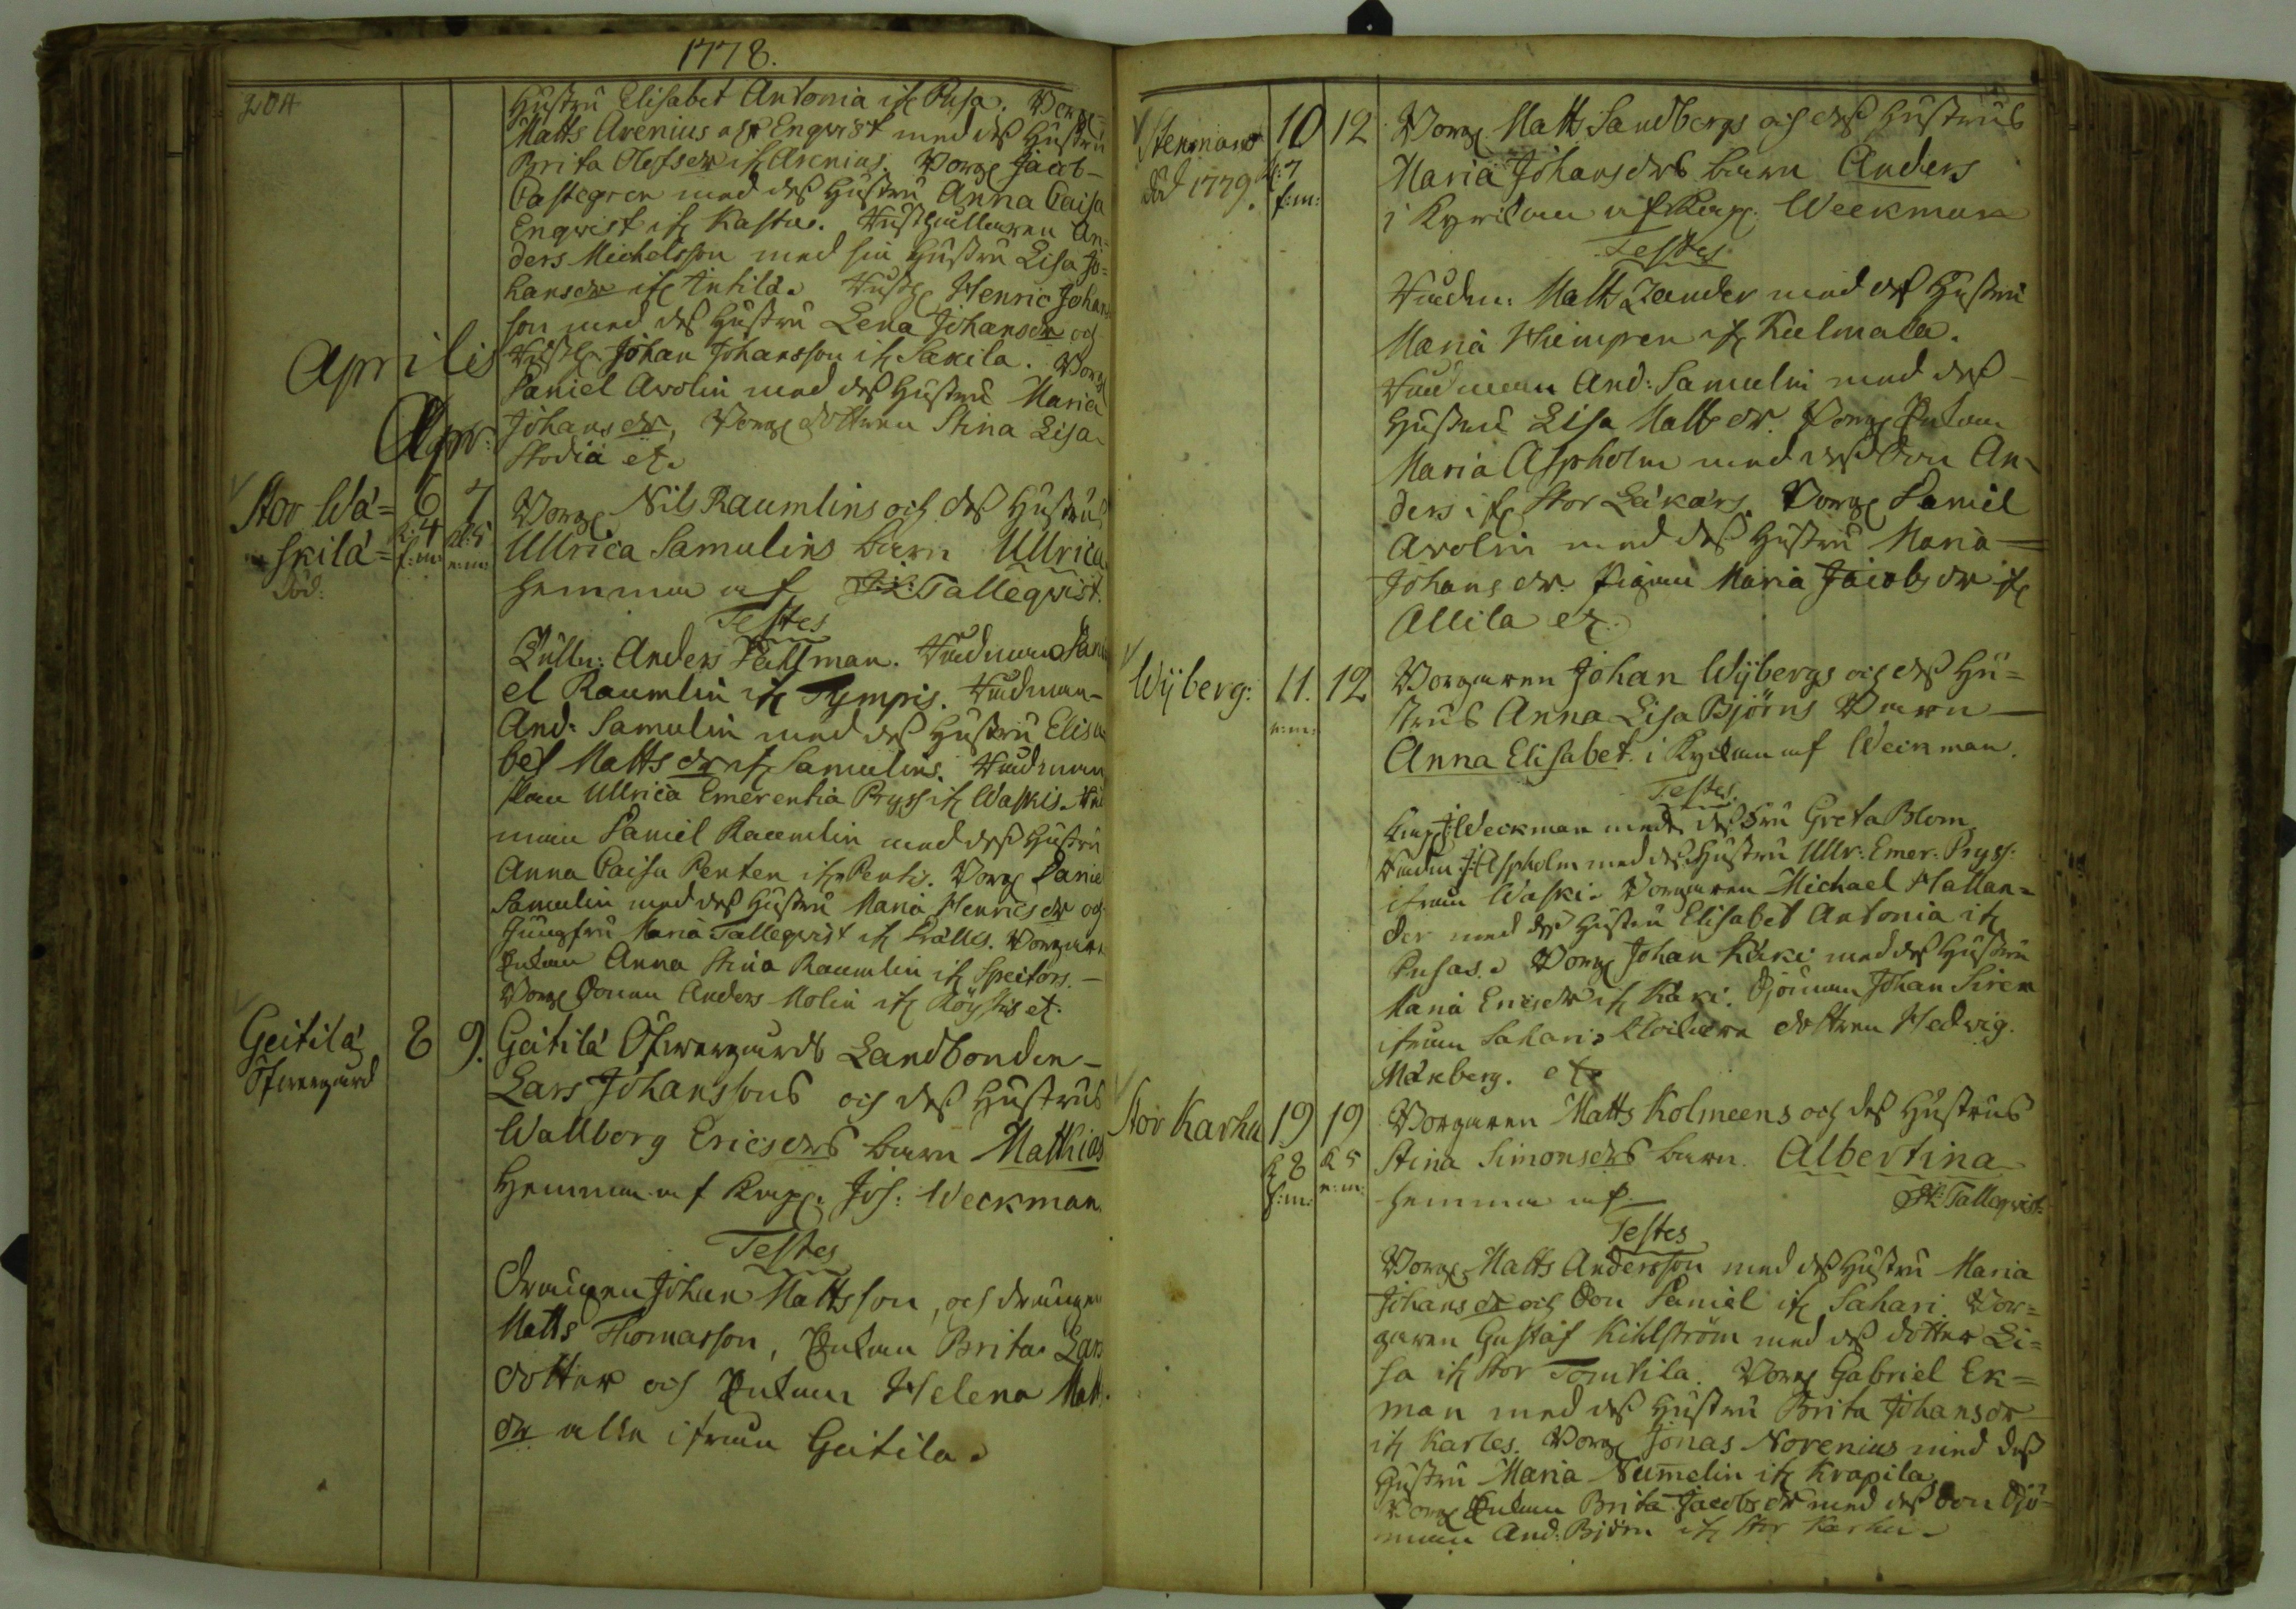 1778.
204
Hustru Elisabet Antonia ifr Pusa. Borg=
Matts Arenius och Enqvist med dess Hustru
Brita Olofsdr ifr Arenius. Borg Jacob
Castegren med dess Hustru Anna Caisa
Enqvist ifr Kastus. Husthållaren An=
ders Michelsson med sin Hustru Lisa Jo=
hansdr ifr Anhila. Husth Henric Johan
son med dess Hustru Lena Johansdr och
Aprilis
Husth. Johan Johansson ifr Sakila. Borg
Daniel Avolin med dess Hustru Maria
Apr:
Johansdr, Borg dottren Stina Lisa
Stodia etc.
Stor Wä= 6 7 Borg. Nils Raumlins och dess Hustrus
skilä= k:4 f:m kl:5 e:m: Ullrica Samulins barn Ullrica
död:
hemma af Tallegvist.
Testes
Anders Pallman. Rådman Dani
el Raumlin ifr Tympis. Rådman
And: Samulin med dess Hustru Elisa
bet Mattsdr ifr Samulins. Rådman
skan Ullrica Emerentia Pryss ifr Waskis. Råd
man Daniel Raumlin med dess Hustru
Anna Caisa Penten ifr Pentis. Borg Danie
Samulin med dess Hustru Maria Henricsdr och
Jungfru Maria Tallegvist ifr Prälles. Borgare
Enkan Anna Stina Raumlin ifr Speitors.
Borg Sonen Anders Molin ifr Köyskis etc.
Geitilä 8 9. Geitilä Öfwergårds Landbonden
Öfwergård
Lars Johanssons och dess Hustrus
Wallborg Ericsdrs barn Mathias
Hemma af Kapp. Joh: Weckman.
Testes
drängen Johan Mattsson, och drängen
Matts Thomasson, Enkan Brita Lars
dotter och Enkan Helena Matt
dr alla ifrån Geitila.
Stenmans 10 12 Borg. Matts Sandbergs och dess Hustrus
död 1779. kl:7 f:m: Maria Johansdrs barn Anders
i Kyrckan af Kapp. Weckman
Testes
Rådm: Matts Zander med dess Hustru
Maria Kiempren ifr Kulmala.
Rådman And: Samulin med dess
Hustru Lisa Mattsdr. Borg Enkan
Maria Aspholm med dess Son An=
ders ifr Stor Läkärs. Borg Daniel
Avolin med dess Hustru Maria
Johansdr. Pigan Maria Jacobsdr ifr
Allila etc.
Wijberg: 11. 12 Borgaren Johan Wijbergs och dess Hu=
e:m: strus Anna Lisa Björns Barn
Anna Elisabet. i Kyrckan af Weckman.
Testes.
Kapp J: Weckman med dess Fru Greta Blom
Rådm J: Aspholm med dess Hustru Ullr: Emer: Pryss.
ifrån Waski. Borgaren Michael Hallan=
der med dess Hustru Elisabet Antonia ifr
Pusas. Borg Johan Käki med dess Hustru
Maria Ericsdr ifr Käki. Sjöman Johan Siren
ifrån Sahari. dottren Hedvig.
Mänberg. etc
Stor Karhu 19 19 Borgaren Matts Kolmeens och dess Hustrus
k 8 f:m: k 5 e:m: Stina Simonsdrs barn. Albertina
hemma af Tallegvist.
Testes
Borg. Matts Andersson med dess Hustru Maria
Johansdr och Son Daniel ifr Sahari. Bor=
garen Gustaf Kihlström med dess dotter Li=
sa ifr Stor Tomtila. Borg Gabriel Ek=
man med dess Hustru Brita Johansdr
ifr Karles. Borg Jonas Norenius med dess
Hustru Maria Numelin ifr Krapila.
Borg Enkan Brita Jacobsdr med dess Son Sjö=
man And: Björn ifr Stor Karhu.